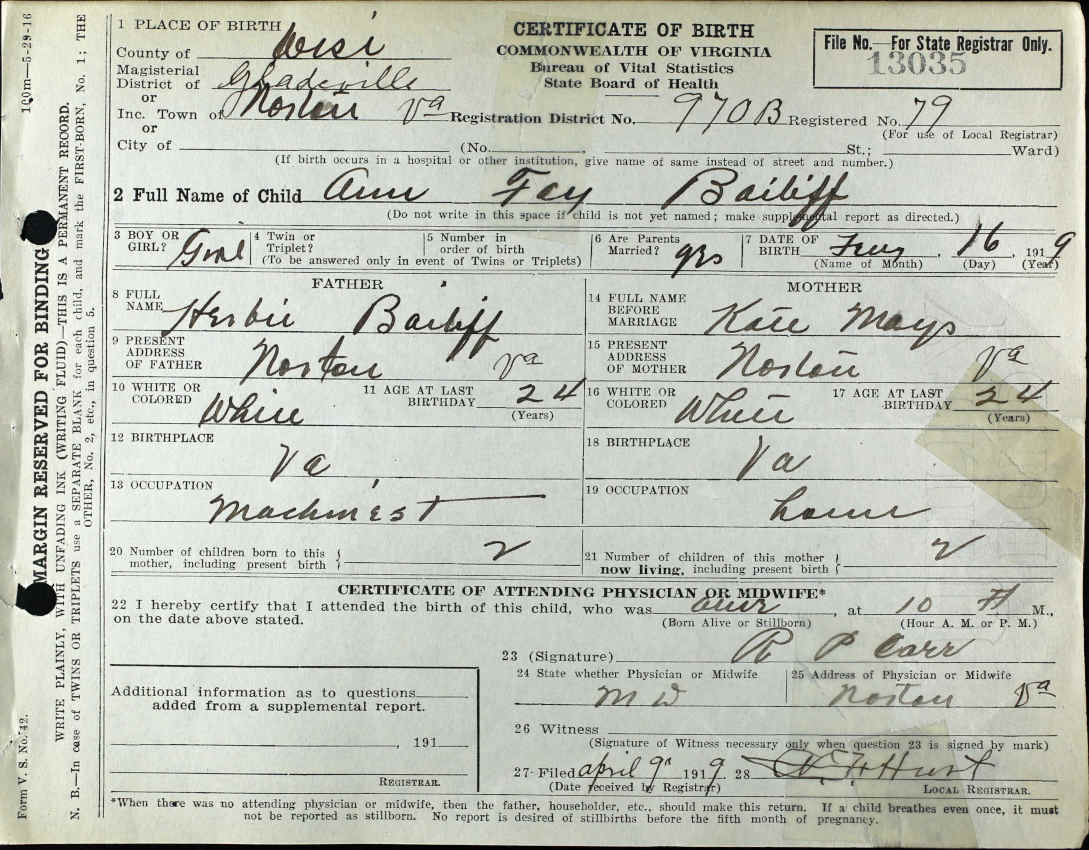 1 PLACE OF BIRTH
County of Wise
Magisterial
District of Gladeville
or
Inc. Town of Norton Va
or
City of (No. , St.; Ward)
(If birth occurs in a hospital or other institution, give name of same instead of street and number.)
CERTIFICATE OF BIRTH
COMMONWEALTH OF VIRGINIA
Bureau of Vital Statistics
State Board of Health
File No.—For State Registrar Only.
13035
Registration District No. 970B Registered No. 79
(For use of Local Registrar)
2 Full Name of Child Ann Fay Bailiff
(Do not write in this space if child is not yet named; make supplemental report as directed.)
3 BOY OR GIRL? Girl
4 Twin or Triplet?
5 Number in order of birth
(To be answered only in event of Twins or Triplets)
6 Are Parents Married? yes
7 DATE OF BIRTH 16, 1919
(Name of Month) (Day) (Year)
FATHER
8 FULL NAME Herbie Bailiff
9 PRESENT ADDRESS OF FATHER Norton Va
10 WHITE OR COLORED White
11 AGE AT LAST BIRTHDAY 24
(Years)
12 BIRTHPLACE Va
13 OCCUPATION Machinist
MOTHER
14 FULL NAME BEFORE MARRIAGE Kate Mays
15 PRESENT ADDRESS OF MOTHER Norton Va
16 WHITE OR COLORED White
17 AGE AT LAST BIRTHDAY 24
(Years)
18 BIRTHPLACE Va
19 OCCUPATION
20 Number of children born to this mother, including present birth 2
21 Number of children of this mother now living, including present birth 2
CERTIFICATE OF ATTENDING PHYSICIAN OR MIDWIFE*
22 I hereby certify that I attended the birth of this child, who was alive, at 10 M.,
on the date above stated. (Born Alive or Stillborn) (Hour A. M. or P. M.)
23 (Signature) R P Carr
24 State whether Physician or Midwife
M D
25 Address of Physician or Midwife
Norton Va
Additional information as to questions
added from a supplemental report.
, 191
REGISTRAR.
26 Witness
(Signature of Witness necessary only when question 23 is signed by mark)
27 Filed april 9, 1919. 28 Hurst
(Date received by Registrar) LOCAL REGISTRAR.
*When there was no attending physician or midwife, then the father, householder, etc., should make this return. If a child breathes even once, it must
not be reported as stillborn. No report is desired of stillbirths before the fifth month of pregnancy.
100m—5-29-16
Form V. S. No. 42.
MARGIN RESERVED FOR BINDING
WRITE PLAINLY, WITH UNFADING INK (WRITING FLUID)—THIS IS A PERMANENT RECORD.
N. B.—In case of TWINS OR TRIPLETS use a SEPARATE BLANK for each child, and mark the FIRST-BORN, No. 1; THE
OTHER, No. 2, etc., in question 5.